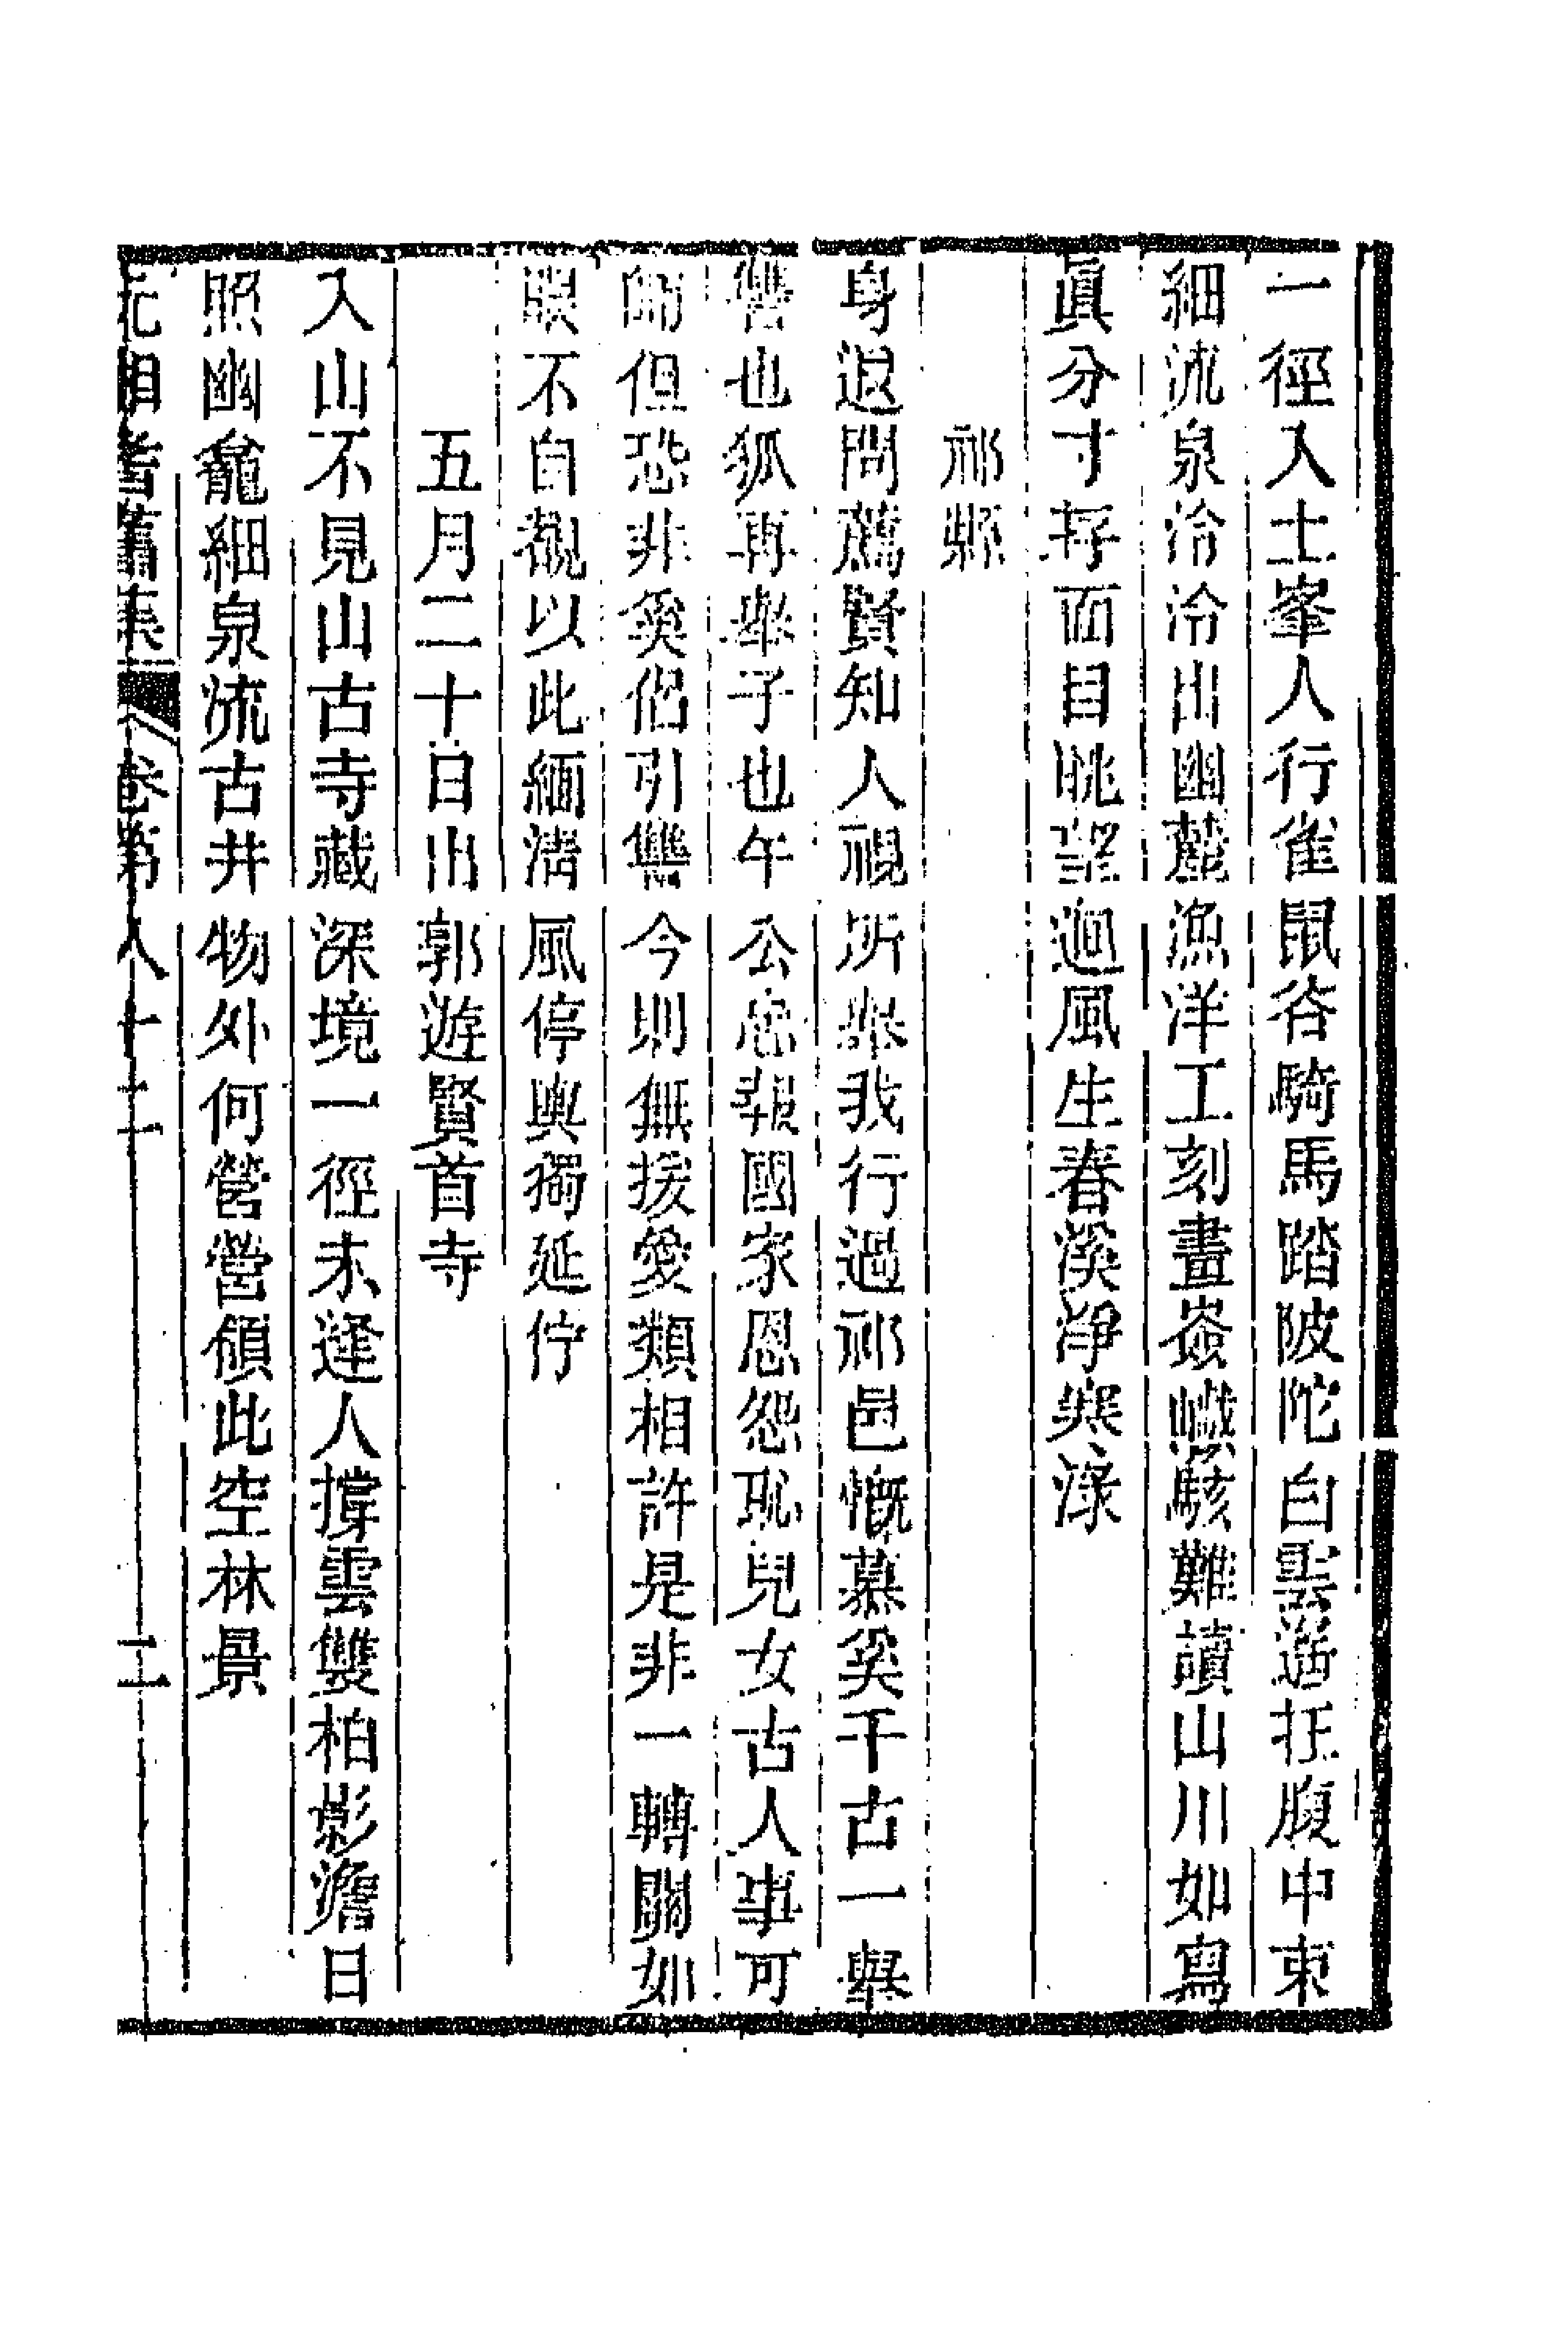 一徑入土峯人行雀鼠谷騎馬踏陂陀白雲遊枉腹中東
細流泉泠泠出幽麓漁洋工刻畫嵌巇駭難讀山川如寫
眞分寸存面目眺望迴風生春溪淨寒淥
祁縣
身退問薦賢知人視所舉我行過祁邑慨慕奚千古一舉
讐也狐再舉子也午公忠報國家恩怨恥兒女古人事可
師但恐非奚侶引讐今則無援愛類相許是非一轉關如
眼不自覩以此緬淸風停輿獨延佇
五月二十日出郭遊賢首寺
入山不見山古寺藏深境一徑未逢人撐雲雙柏影澹日
照幽龕細泉流古井物外何營營領此空林景
沅湘耆舊集 卷第八十二 二